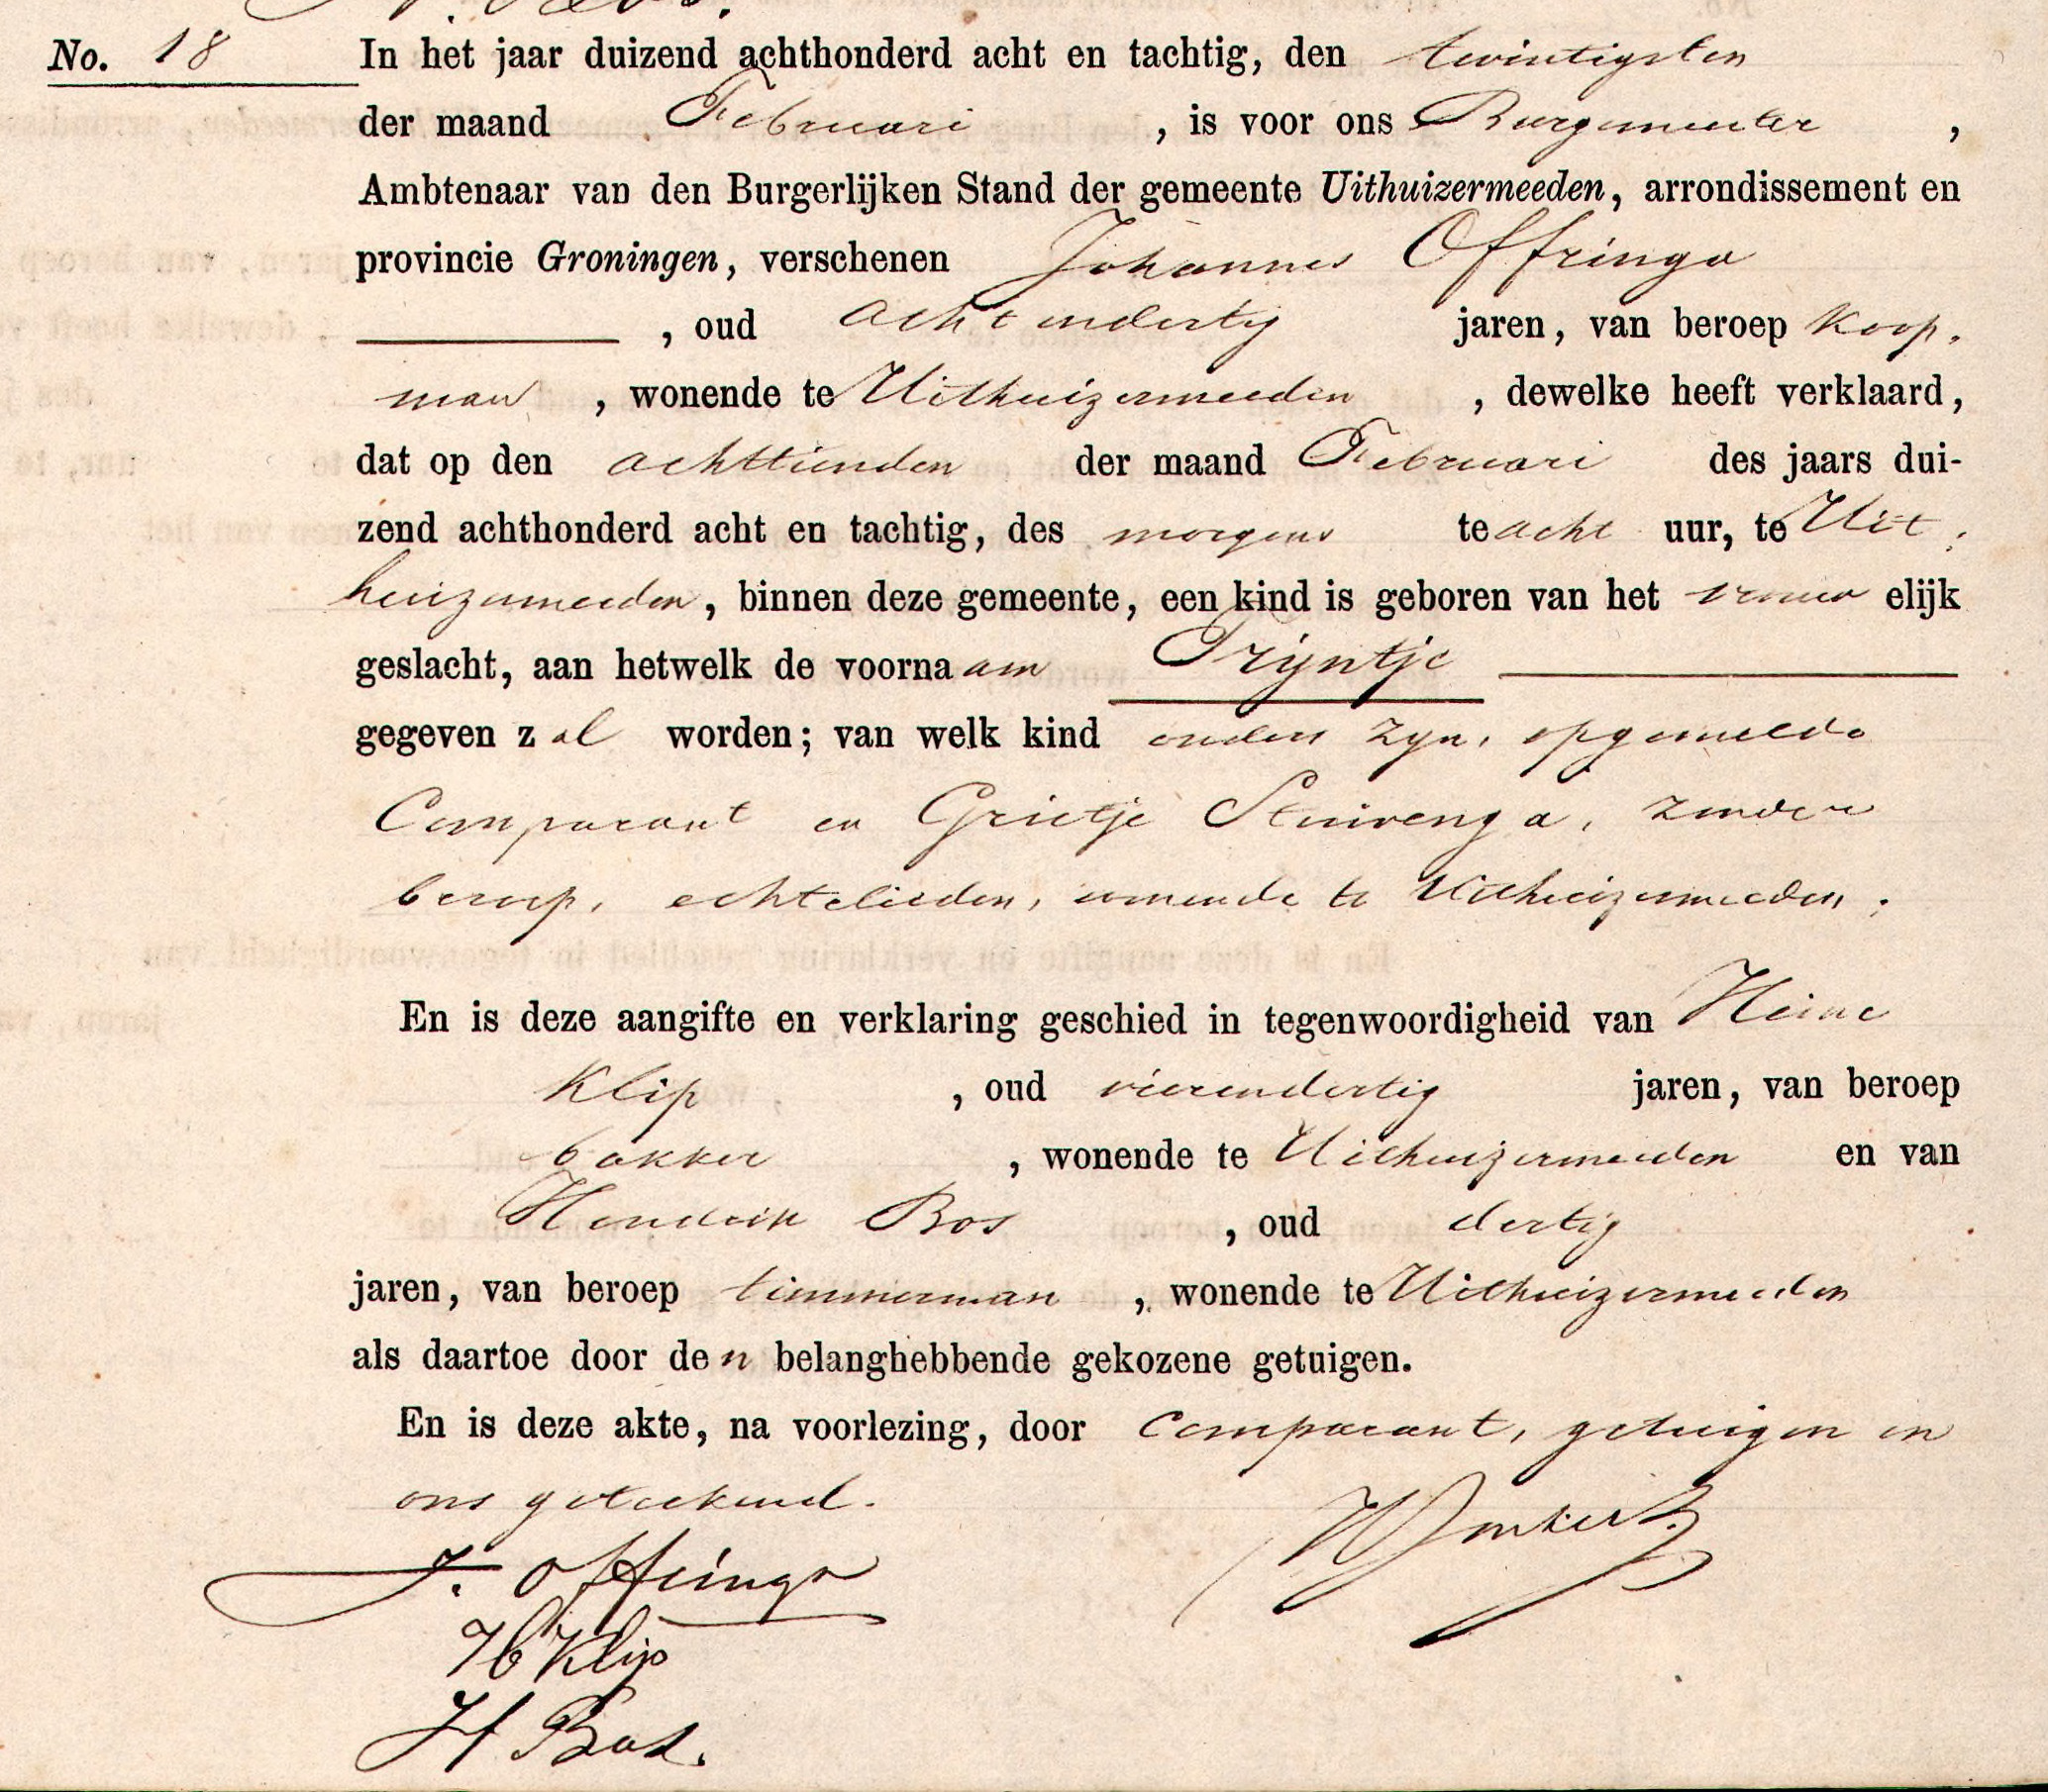 No. 18 In het jaar duizend achthonderd acht en tachtig, den twintigsten
der maand Februari , is voor ons Burgemeester ,
Ambtenaar van den Burgerlijken Stand der gemeente Uithuizermeeden, arrondissement en
provincie Groningen, verschenen Johannes Offringa
, oud achtendertig jaren, van beroep koop-
man , wonende te Uithuizermeeden , dewelke heeft verklaard,
dat op den achttienden der maand Februari des jaars dui-
zend achthonderd acht en tachtig, des morgens te acht uur, te Uit-
huizermeeden, binnen deze gemeente, een kind is geboren van het vrouwelijk
geslacht, aan hetwelk de voornaam Trijntje
gegeven zal worden; van welk kind ouders zijn, opgemelde
Comparant en Grietje Stuivenga, zonder
beroep, echtelieden, wonende te Uithuizermeeden.
En is deze aangifte en verklaring geschied in tegenwoordigheid van Heine
Klip , oud vierendertig jaren, van beroep
bakker , wonende te Uithuizermeeden en van
Hendrik Bos , oud dertig
jaren, van beroep timmerman , wonende te Uithuizermeeden
als daartoe door den belanghebbende gekozene getuigen.
En is deze akte, na voorlezing, door comparant, getuigen en
ons geteekend.
J. Offringa
H Klip
H Bos.